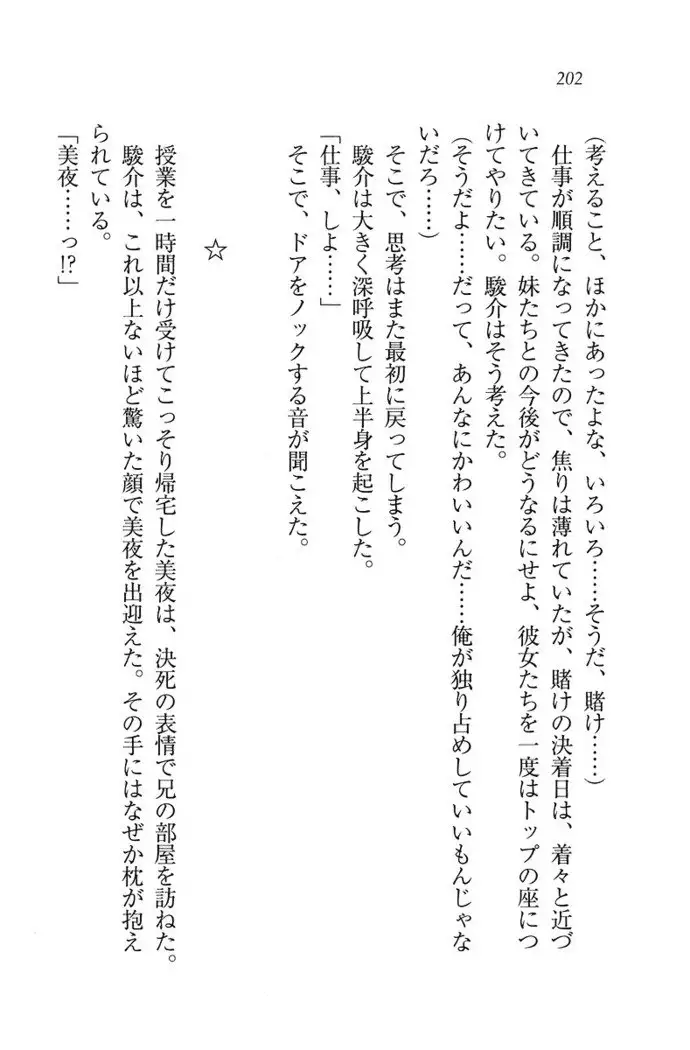 202
(考えること、ほかにあったよな、いろいろ……そうだ、賭け……)
仕事が順調になってきたので、焦りは薄れていたが、賭けの決着日は、着々と近づ
いてきている。妹たちとの今後がどうなるにせよ、彼女たちを一度はトップの座につ
けてやりたい。駿介はそう考えた。
(そうだよ……だって、あんなにかわいいんだ……俺が独り占めしていいもんじゃな
いだろ……)
そこで、思考はまた最初に戻ってしまう。
駿介は大きく深呼吸して上半身を起こした。
「仕事、しよ……」
そこで、ドアをノックする音が聞こえた。
☆
授業を一時間だけ受けてこっそり帰宅した美夜は、決死の表情で兄の部屋を訪ねた。
駿介は、これ以上ないほど驚いた顔で美夜を出迎えた。その手にはなぜか枕が抱え
られている。
「美夜……っ!?」